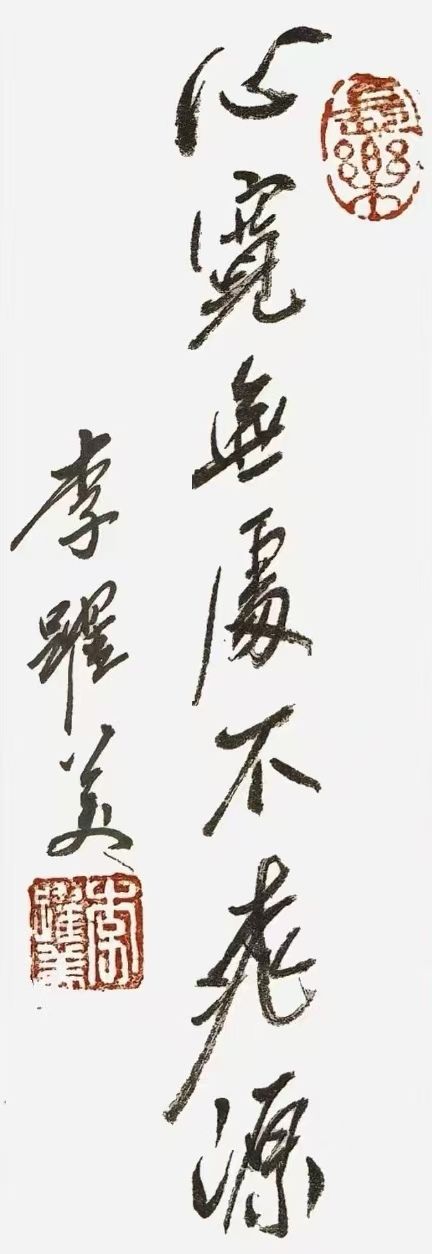 長樂
心寬無處不桃源
李躍美
李躍美